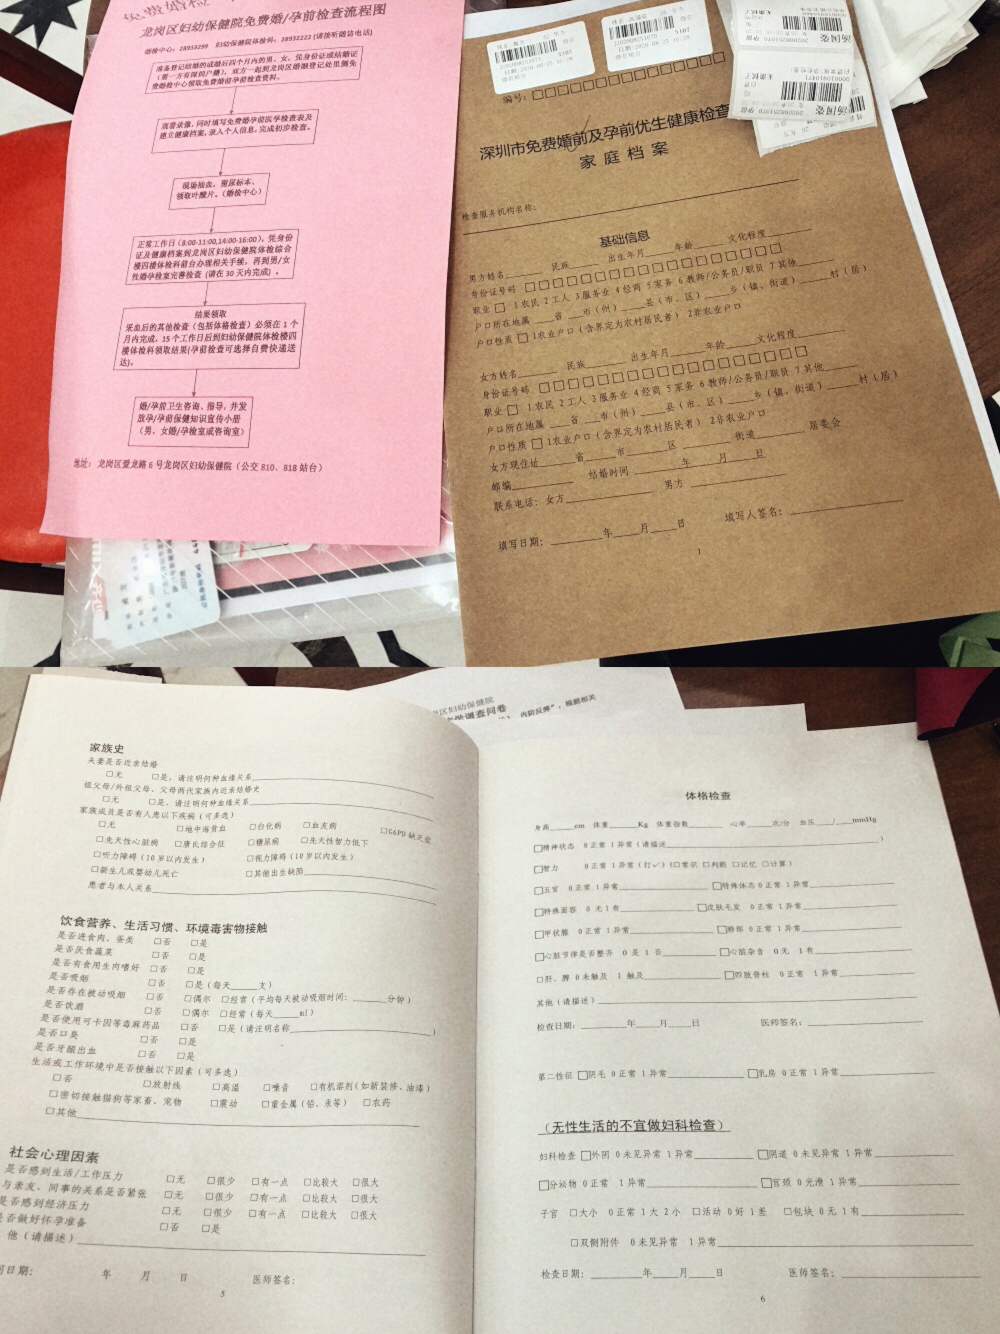 龙岗区妇幼保健院免费婚/孕前检查流程图
婚检中心：28953299 妇幼保健院体检科：28932222（请按听随访电话）
准备登记结婚的或婚后四个月内的男、女，凭身份证或结婚证
（男一方有深圳户籍），双方一起到龙岗区婚姻登记处里侧免
费婚检中心领取免费婚前孕前检查资料。
观看录像，同时填写免费婚孕前医学检查表及
建立健康档案，录入个人信息，完成初步检查。
现场抽血，留尿标本、
领取叶酸片。（婚检中心）
正常工作日（8:00-11:00,14:00-16:00），凭身份
证及健康档案到龙岗区妇幼保健院体检综合
楼四楼体检科前台办理相关手续，再到男/女
性婚孕检室完善检查（请在 30 天内完成）。
结果领取
采血后的其他检查（包括体格检查）必须在 1 个
月内完成，15 个工作日后到妇幼保健院体检楼四
楼体检科领取结果/孕前检查可选择自费快递送
达）。
婚/孕前卫生咨询、指导，并发
放孕/孕前保健知识宣传小册
（男、女婚/孕检室或咨询室）
地址：龙岗区爱龙路 6 号龙岗区妇幼保健院（公交 810、818 站台）
编号：□□□□□□□□□□□□
深圳市免费婚前及孕前优生健康检查
家 庭 档 案
检查服务机构名称：
基础信息
男方姓名______ 民族______ 出生年月______年龄____文化程度______
身份证号码 □□□□□□□□□□□□□□□□□□
职业 □ 1农民 2工人 3服务业 4经商 5家务 6教师/公务员/职员 7其他______
户口所在地属 ____省 ____市（州）____县（市、区）____乡（镇、街道）____村（居）
户口性质 □ 1农业户口（含界定为农村居民者） 2非农业户口
女方姓名______ 民族______ 出生年月______年龄____文化程度______
身份证号码 □□□□□□□□□□□□□□□□□□
职业 □ 1农民 2工人 3服务业 4经商 5家务 6教师/公务员/职员 7其他______
户口所在地属 ____省 ____市（州）____县（市、区）____乡（镇、街道）____村（居）
户口性质 □ 1农业户口（含界定为农村居民者） 2非农业户口
女方现住址______省______市______区______街道______居委会
邮编______ 结婚时间______年____月____日
联系电话：女方______ 男方______
填写日期：______年____月____日 填写人签名：______
1
汤国姿
家族史
夫妻是否近亲结婚
□无 □是，请注明何种血缘关系______
祖父母/外祖父母、父母两代家族内近亲结婚史
□无 □是，请注明何种血缘关系______
家族成员是否有人患以下疾病（可多选）
□无 □地中海贫血 □白化病 □血友病 □G6PD缺乏症
□先天性心脏病 □唐氏综合征 □糖尿病 □先天性智力低下
□听力障碍（10岁以内发生） □视力障碍（10岁以内发生）
□新生儿或婴幼儿死亡 □其他出生缺陷______
患者与本人关系______
饮食营养、生活习惯、环境毒害物接触
是否进食肉、蛋类 □否 □是
是否厌食蔬菜 □否 □是
是否有食用生肉嗜好 □否 □是
是否吸烟 □否 □是（每天______支）
是否存在被动吸烟 □否 □偶尔 □经常（平均每天被动吸烟时间：______分钟）
是否饮酒 □否 □偶尔 □经常（每天______ml）
是否使用可卡因等毒麻药品 □否 □是（请注明名称______）
是否口臭 □否 □是
是否牙龈出血 □否 □是
生活或工作环境中是否接触以下因素（可多选）
□否 □放射线 □高温 □噪音 □有机溶剂（如新装修、油漆）
□密切接触猫狗等家畜、宠物 □震动 □重金属（铅、汞等） □农药
□其他______
社会心理因素
是否感到生活/工作压力 □无 □很少 □有一点 □比较大 □很大
与亲友、同事的关系是否紧张 □无 □很少 □有一点 □比较大 □很大
是否感到经济压力 □无 □很少 □有一点 □比较大 □很大
是否做好怀孕准备 □否 □是
他（请描述）______
日期： 年 月 日 医师签名：
5
区妇幼保健院
调查问卷
内防反弹"，根据相关
体格检查
身高______cm 体重______Kg 体重指数______ 心率______次/分 血压____/____mmHg
□精神状态 0正常 1异常（请描述______）
□智力 0正常 1异常（打√）（□常识 □判断 □记忆 □计算）
□五官 0正常 1异常______ □特殊体态 0正常 1异常______
□特殊面容 0无 1有______ □皮肤毛发 0正常 1异常______
□甲状腺 0正常 1异常______ □肺部 0正常 1异常______
□心脏节律是否整齐 0是 1否______ □心脏杂音 0无 1有______
□肝、脾 0未触及 1触及______ □四肢脊柱 0正常 1异常______
其他（请描述）______
检查日期：______年____月____日 医师签名：______
第二性征 □阴毛 0正常 1异常______ □乳房 0正常 1异常______
（无性生活的不宜做妇科检查）
妇科检查 □外阴 0未见异常 1异常______ □阴道 0未见异常 1异常______
□分泌物 0正常 1异常______ □宫颈 0光滑 1异常______
子宫 □大小 0正常 1大 2小 □活动 0好 1差 □包块 0无 1有______
□双侧附件 0未见异常 1异常______
检查日期：______年____月____日 医师签名：______
6